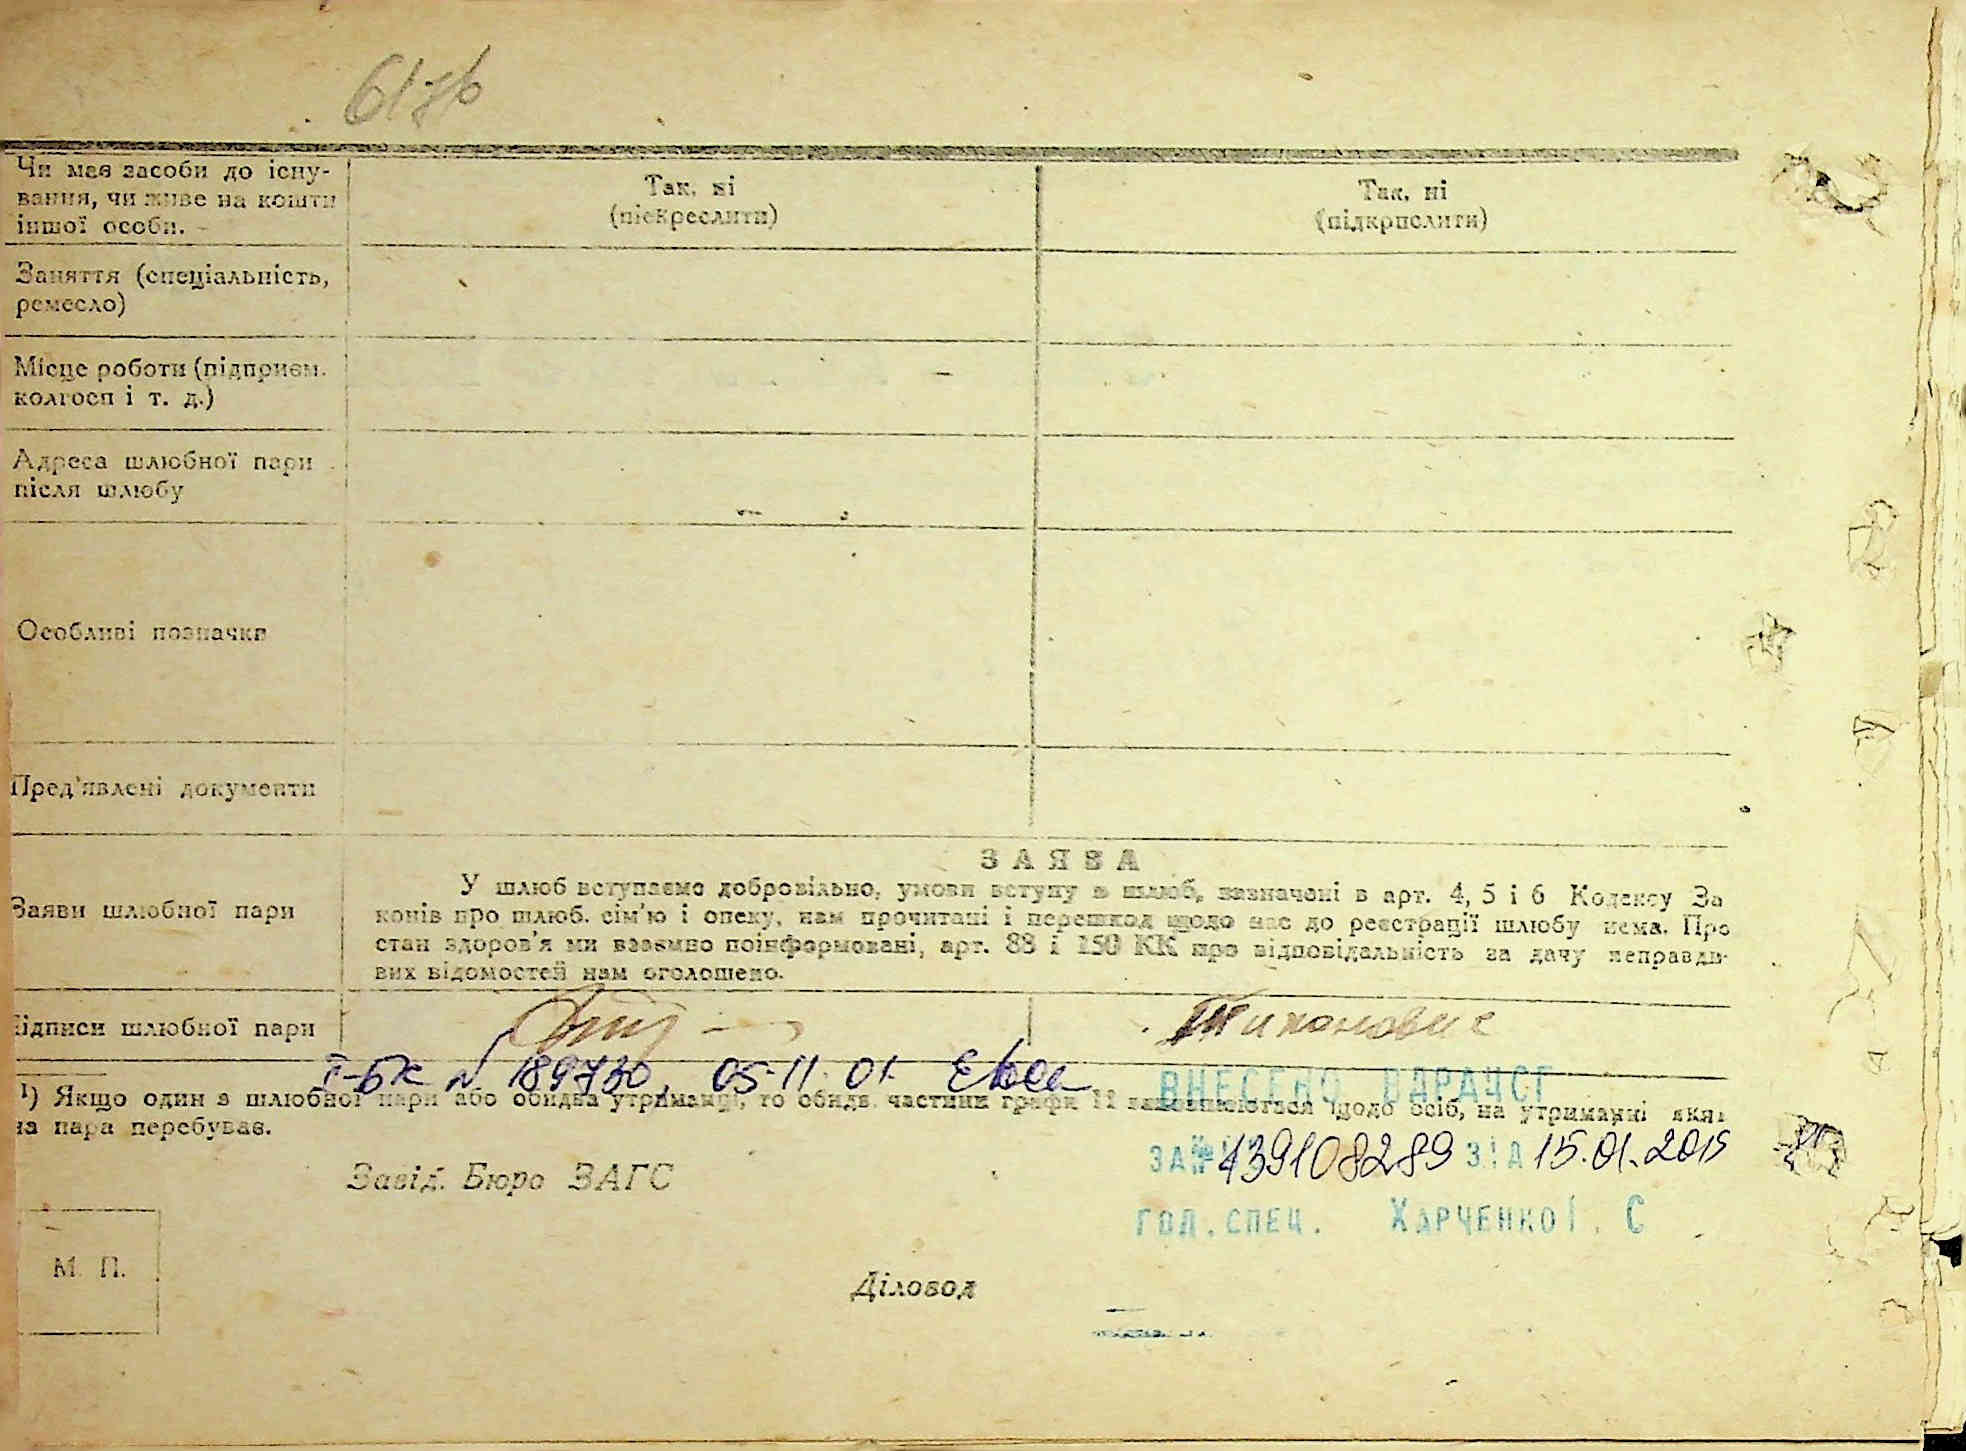 Чи має засоби до існу-
вання, чи живе на кошти
іншої особи.
Так, ні
(підкреслити)
Так, ні
(підкрислити)
Заняття (спеціальність,
ремесло)
Місце роботи (підприєм.
колгосп і т. д.)
Адреса шлюбної пари
після шлюбу
Особливі позначки
Пред'явлені документи
Заяви шлюбної пари
ЗАЯВА
У шлюб вступаємо добровільно, умови вступу в шлюб, зазначені в арт. 4, 5 і 6 Кодексу За
конів про шлюб. сім'ю і опеку, нам прочитані і перешкод щодо нас до реєстрації шлюбу нема. Про
стан здоров'я ми взаємно поінформовані, арт. 88 і 150 КК про відповідальність за дачу неправди-
вих відомостей нам оголошено.
Підписи шлюбної пари
Типанович
I-БК N 189730, 05-11 01
ВНЕСЕНО ДРАЦСГ
¹) Якщо один з шлюбної пари або обидва утриманці, то обидв. частини графи 11 заповнюються щодо осіб, на утриманні яких
на пара перебуває.
ЗА № 439108289 ВІД 15.01.2015
Завід. Бюро ЗАГС
ГОЛ. СПЕЦ. ХАРЧЕНКОЇ. С
М. П.
Діловод